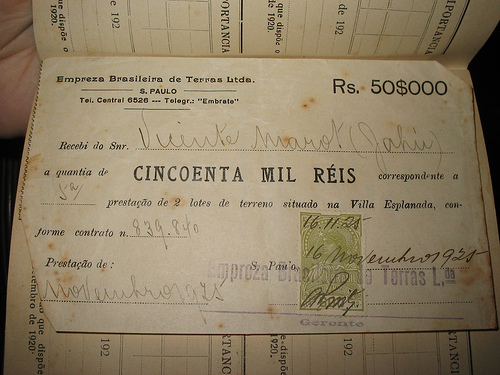 que dispõe o
1920.
e 192
PORTANCIA
que dispõe o
1920.
de 192
IPORTANCIA
Empreza Brasileira de Terras Ltda.
S. PAULO
Tel. Central 6526 --- Telegr.: "Embrate"
Rs. 50$000
Recebi do Snr. Vicente Marot (Jahú)
a quantia de CINCOENTA MIL RÉIS correspondente a
5ª prestação de 2 lotes de terreno situado na Villa Esplanada, con-
forme contrato n. 839.840
16.11.25
Prestação de: S. Paulo, 16 Novembro 1925
Novembro 1925
Empreza Brasileira de Terras L.da
Gerente
embro de 1920.
o que dispõe
192
TANC
e dispõe
1920.
192
RTANC